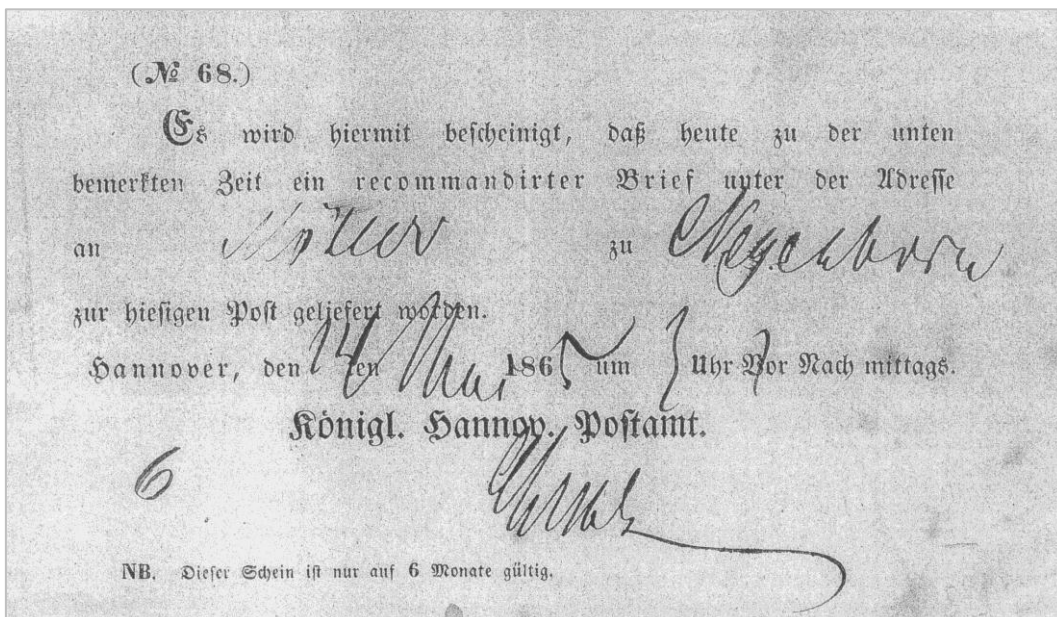 (№ 68.)
Es wird hiermit bescheinigt, daß heute zu der unten
bemerkten Zeit ein recommandirter Brief unter der Adresse
an Möller zu Negenborn
zur hiesigen Post geliefert worden.
Hannover, den 14ten Mai 1865 um Uhr Vor Nach mittags.
Königl. Hannov. Postamt.
6
NB. Dieser Schein ist nur auf 6 Monate gültig.